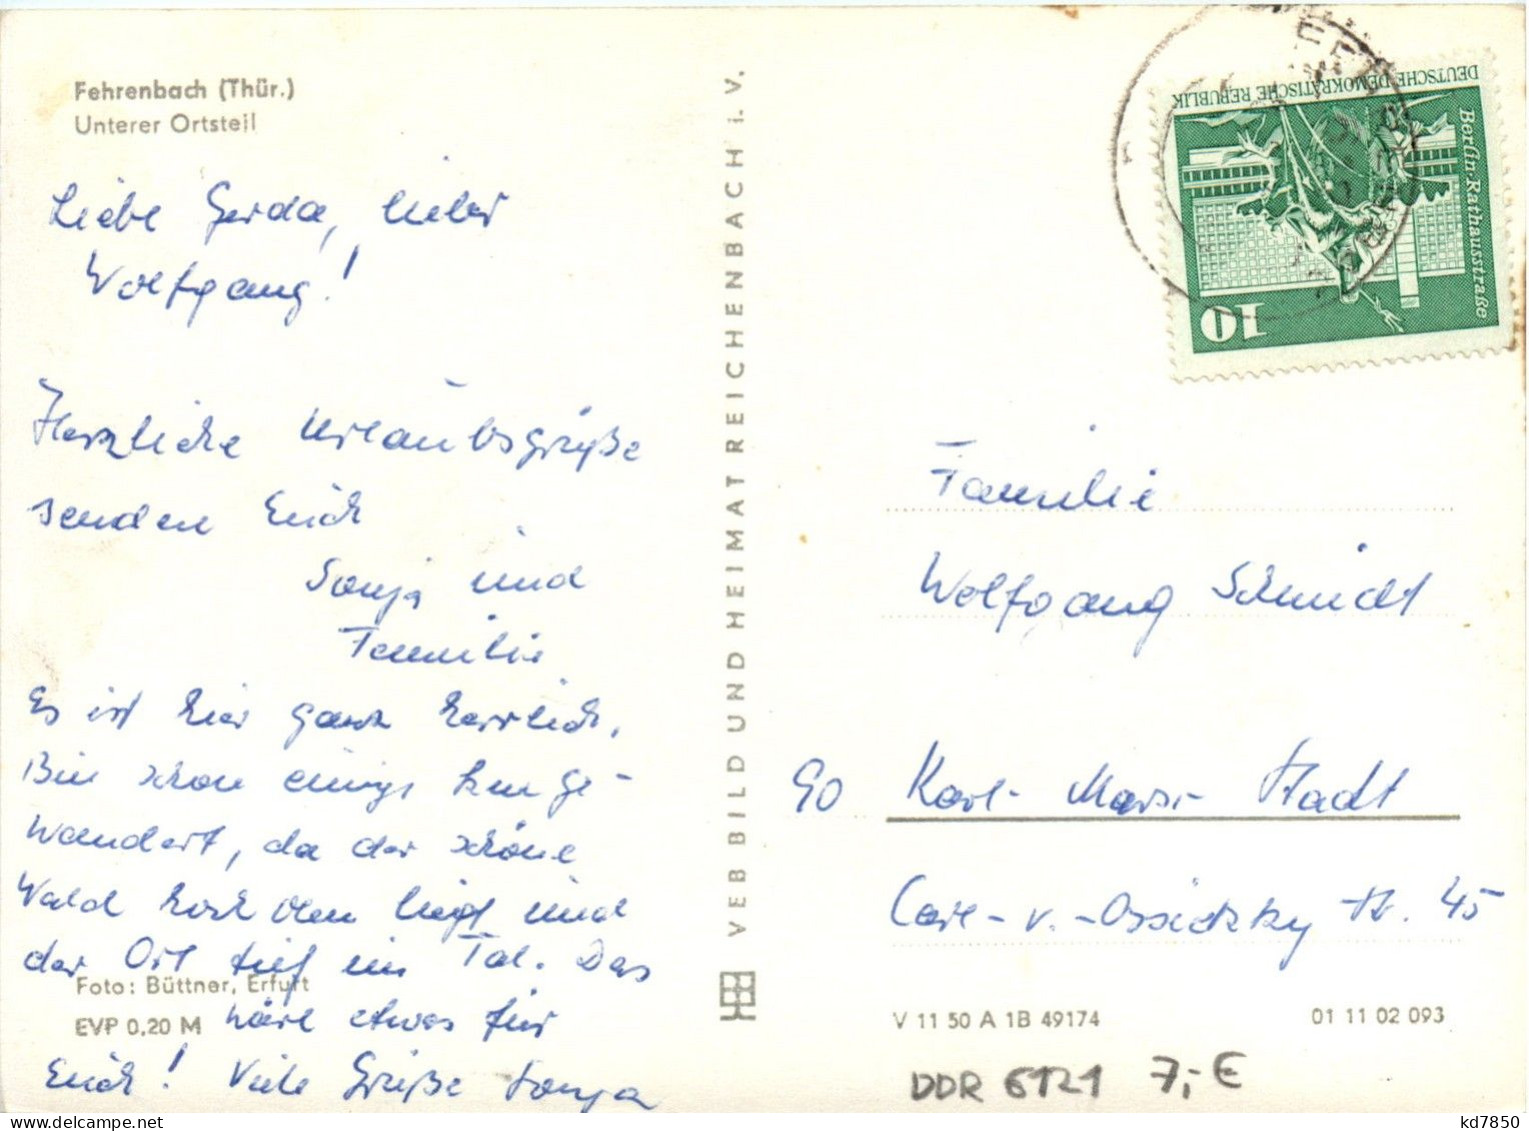 Fehrenbach (Thür.)
Unterer Ortsteil
Liebe Gerda, lieber
Wolfgang!
Herzliche Urlaubsgrüße
senden Euch
Sonja und
Familie
Es ist hier ganz herrlich.
Bin schon einige km ge-
wandert, da der schöne
Wald hoch oben liegt und
der Ort tief im Tal. Das
Foto: Büttner, Erfurt
wäre etwas für
EVP 0,20 M
Euch! Viele Grüße Sonja
VEB BILD UND HEIMAT REICHENBACH i. V.
DEUTSCHE DEMOKRATISCHE REPUBLIK
Berlin·Rathausstraße
10
Familie
Wolfgang Schmidt
90 Karl-Marx-Stadt
Carl-v.-Ossietzky Str. 45
V 11 50 A 1B 49174
01 11 02 093
DDR 6121 7,- €
kd7850